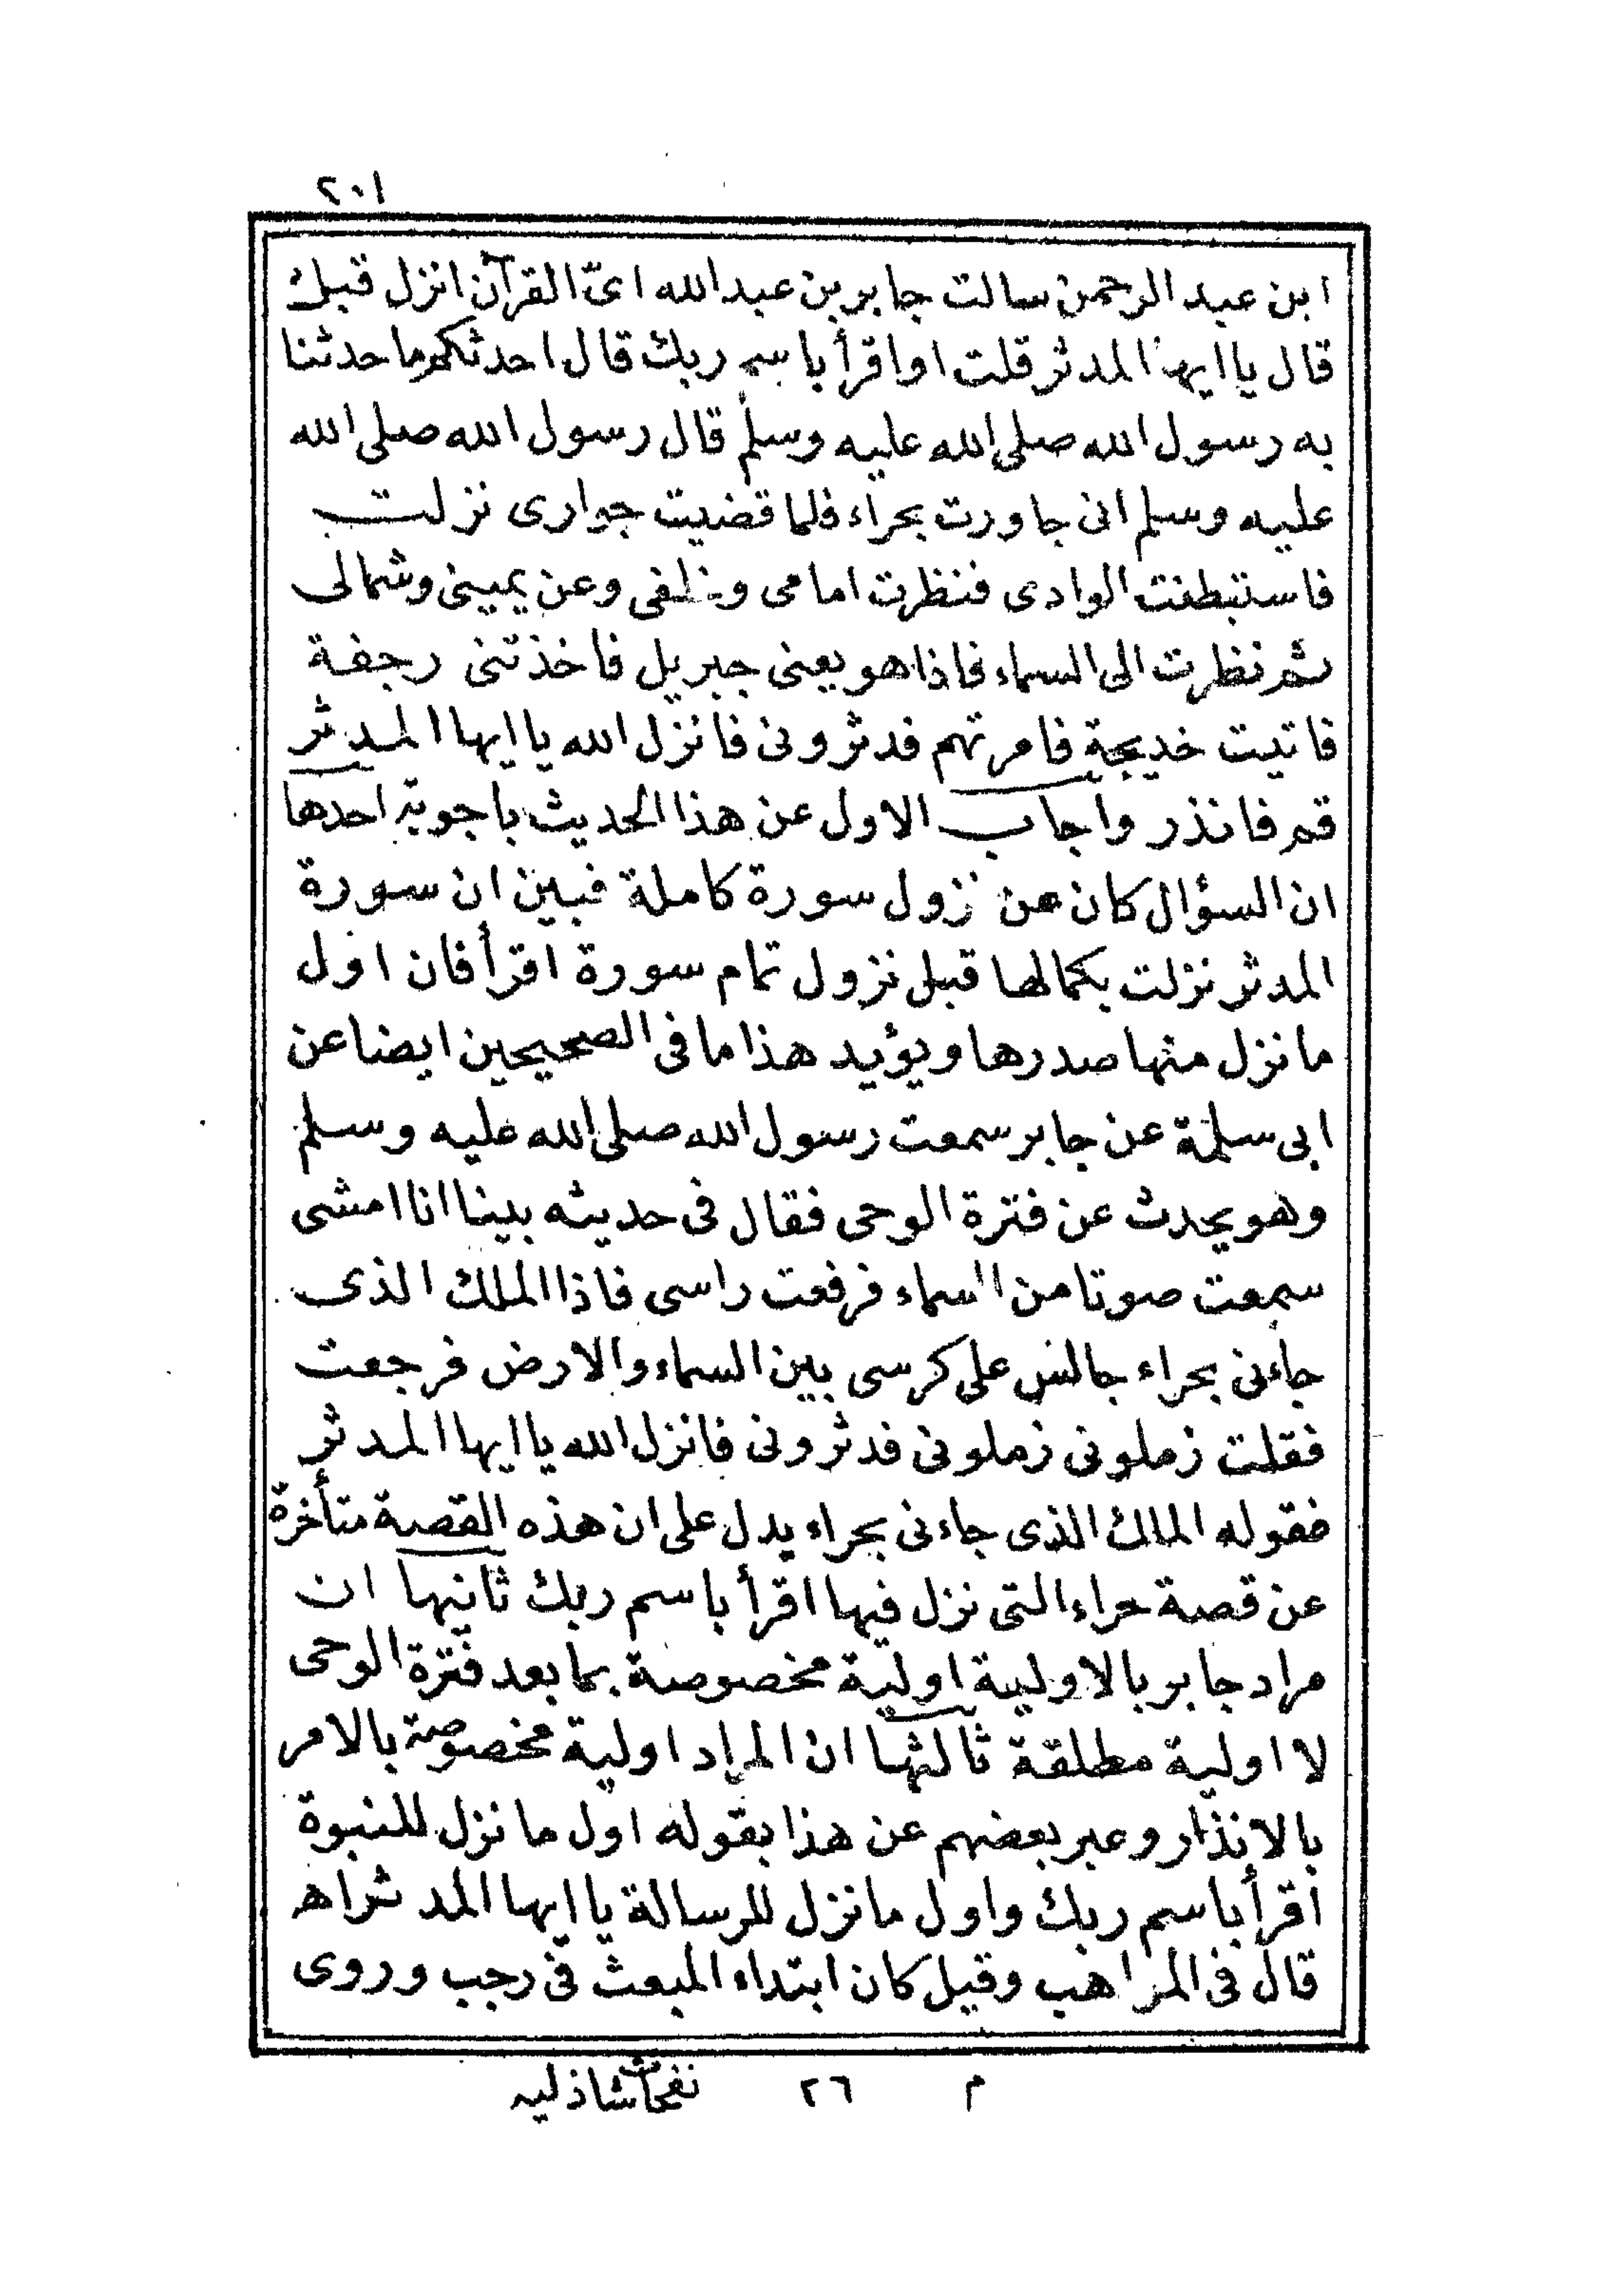 ٢٠١
ابن عبد الرحمن سالت جابر بن عبد الله اىّ القرآن انزل قبل
قال يا ايها المدثر قلت او اقرأ باسم ربك قال احدثكم ما حدثنا
به رسول الله صلى الله عليه وسلم قال رسول الله صلى الله
عليه وسلم انى جاورت بحراء فلما قضيت جوارى نزلت
فاستبطنت الوادى فنظرت امامى وخلفى وعن يمينى وشمالى
ثم نظرت الى السماء فاذا هو يعنى جبريل فاخذتنى رجفة
فاتيت خديجة فامرتهم فدثرونى فانزل الله يا ايها المدثر
قم فانذر واجاب الاول عن هذا الحديث باجوبة احدها
ان السؤال كان عن نزول سورة كاملة فبين ان سورة
المدثر نزلت بكمالها قبل نزول تمام سورة اقرأ فان اول
ما نزل منها صدرها ويؤيد هذا ما فى الصحيحين ايضا عن
ابى سلمة عن جابر سمعت رسول الله صلى الله عليه وسلم
وهو يحدث عن فترة الوحى فقال فى حديثه بينا انا امشى
سمعت صوتا من السماء فرفعت راسى فاذا الملك الذى
جاءنى بحراء جالس على كرسى بين السماء والارض فرجعت
فقلت زملونى زملونى فدثرونى فانزل الله يا ايها المدثر
فقوله الملك الذى جاءنى بحراء يدل على ان هذه القصة متأخرة
عن قصة حراء التى نزل فيها اقرأ باسم ربك ثانيها ان
مراد جابر بالاولية اولية مخصوصة بما بعد فترة الوحى
لا اولية مطلقة ثالثها ان المراد اولية مخصوصة بالامر
بالانذار وعبر بعضهم عن هذا بقوله اول ما نزل للنبوة
اقرأ باسم ربك واول ما نزل للرسالة يا ايها المدثر اه
قال فى المواهب وقيل كان ابتداء المبعث فى رجب وروى
م ٢٦ نفحات شاذليه